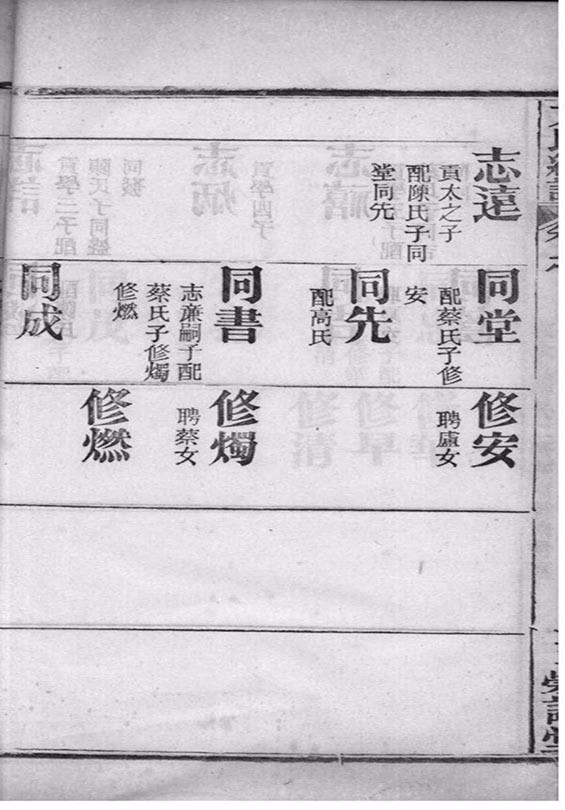 志遠
貢太之子
配陳氏子同
堂同先
同堂
配蔡氏子修
安
同先
配高氏
同書
志廉嗣子配
蔡氏子修燭
修燃
同成
修安
聘廬女
修燭
聘蔡女
修燃